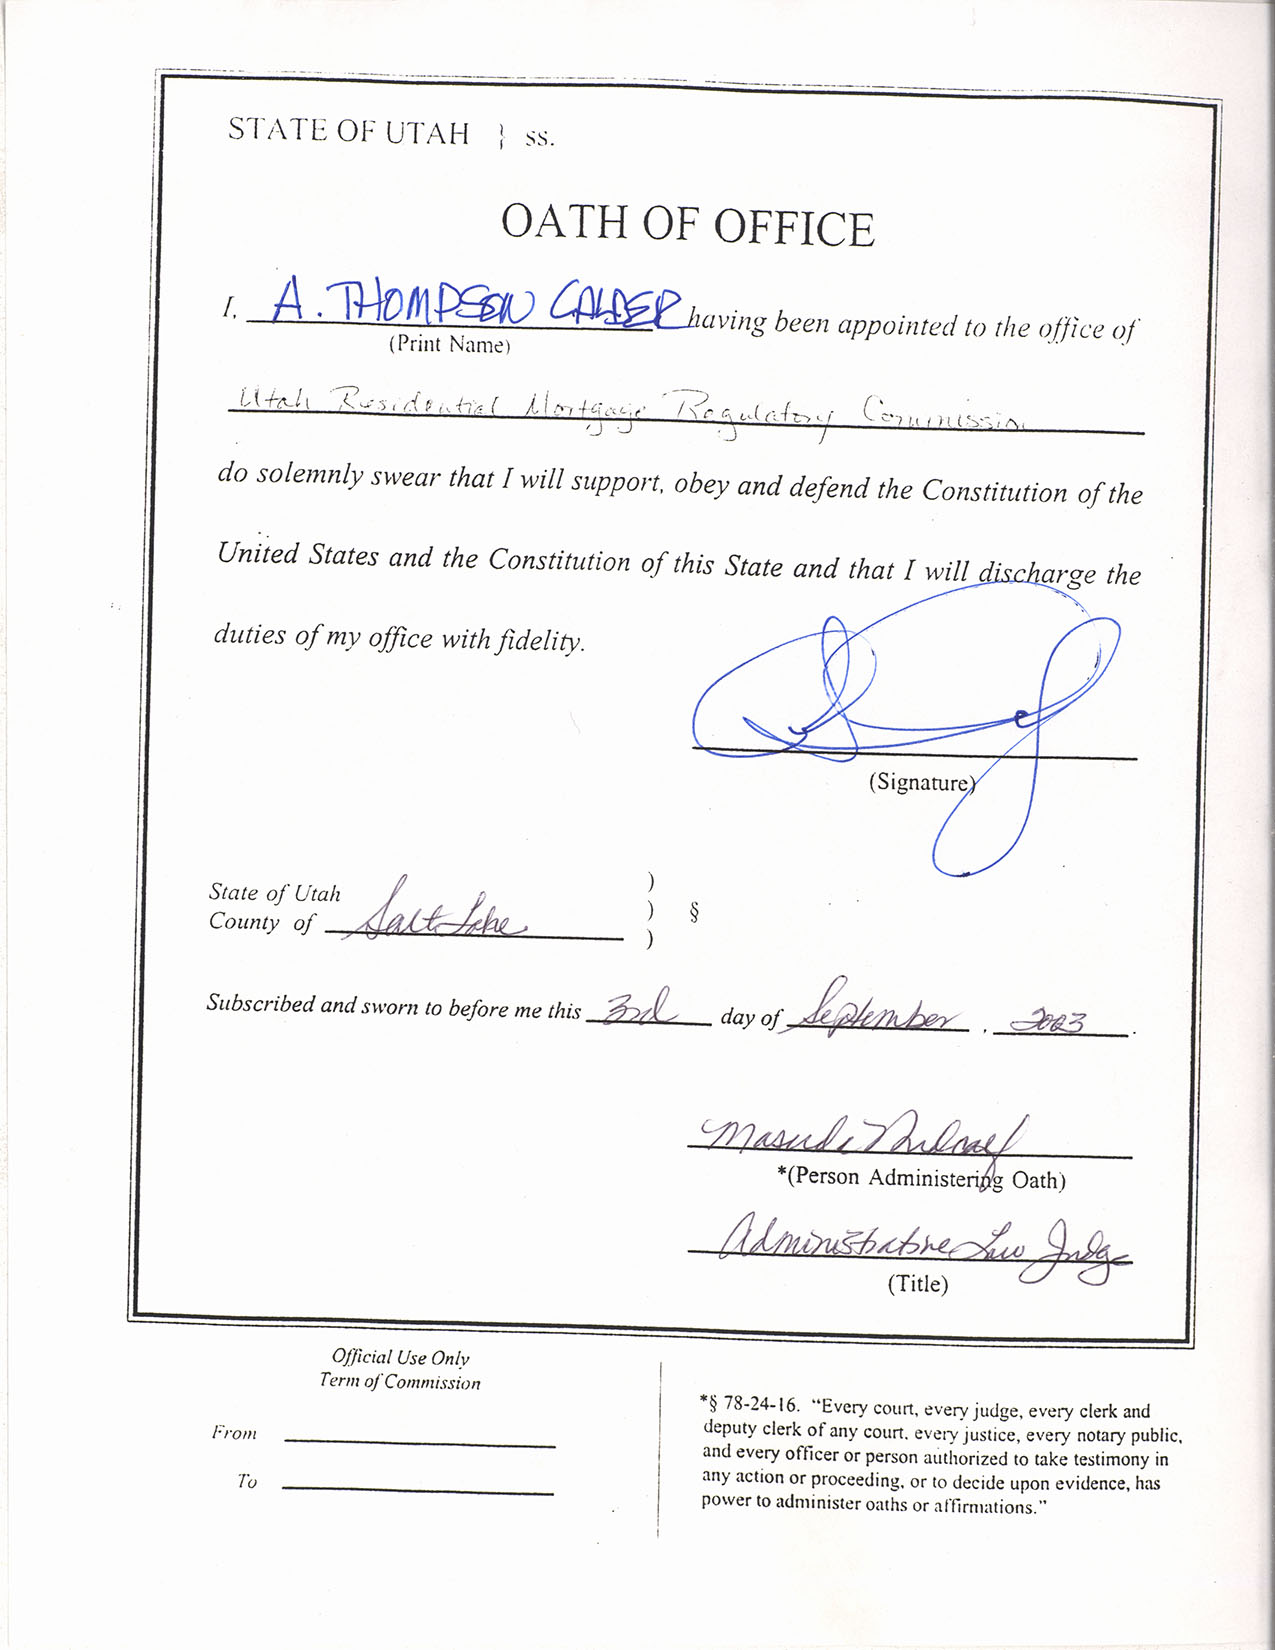 STATE OF UTAH } ss.
OATH OF OFFICE
I, A. THOMPSON CALDER having been appointed to the office of
(Print Name)
Utah Residential Mortgage Regulatory Commission
do solemnly swear that I will support, obey and defend the Constitution of the
United States and the Constitution of this State and that I will discharge the
duties of my office with fidelity.
(Signature)
State of Utah )
County of Salt Lake ) §
)
Subscribed and sworn to before me this 3rd day of September, 2003.
Masuda
*(Person Administering Oath)
Administrative Law Judge
(Title)
Official Use Only
Term of Commission
From
To
*§ 78-24-16. “Every court, every judge, every clerk and
deputy clerk of any court, every justice, every notary public,
and every officer or person authorized to take testimony in
any action or proceeding, or to decide upon evidence, has
power to administer oaths or affirmations.”